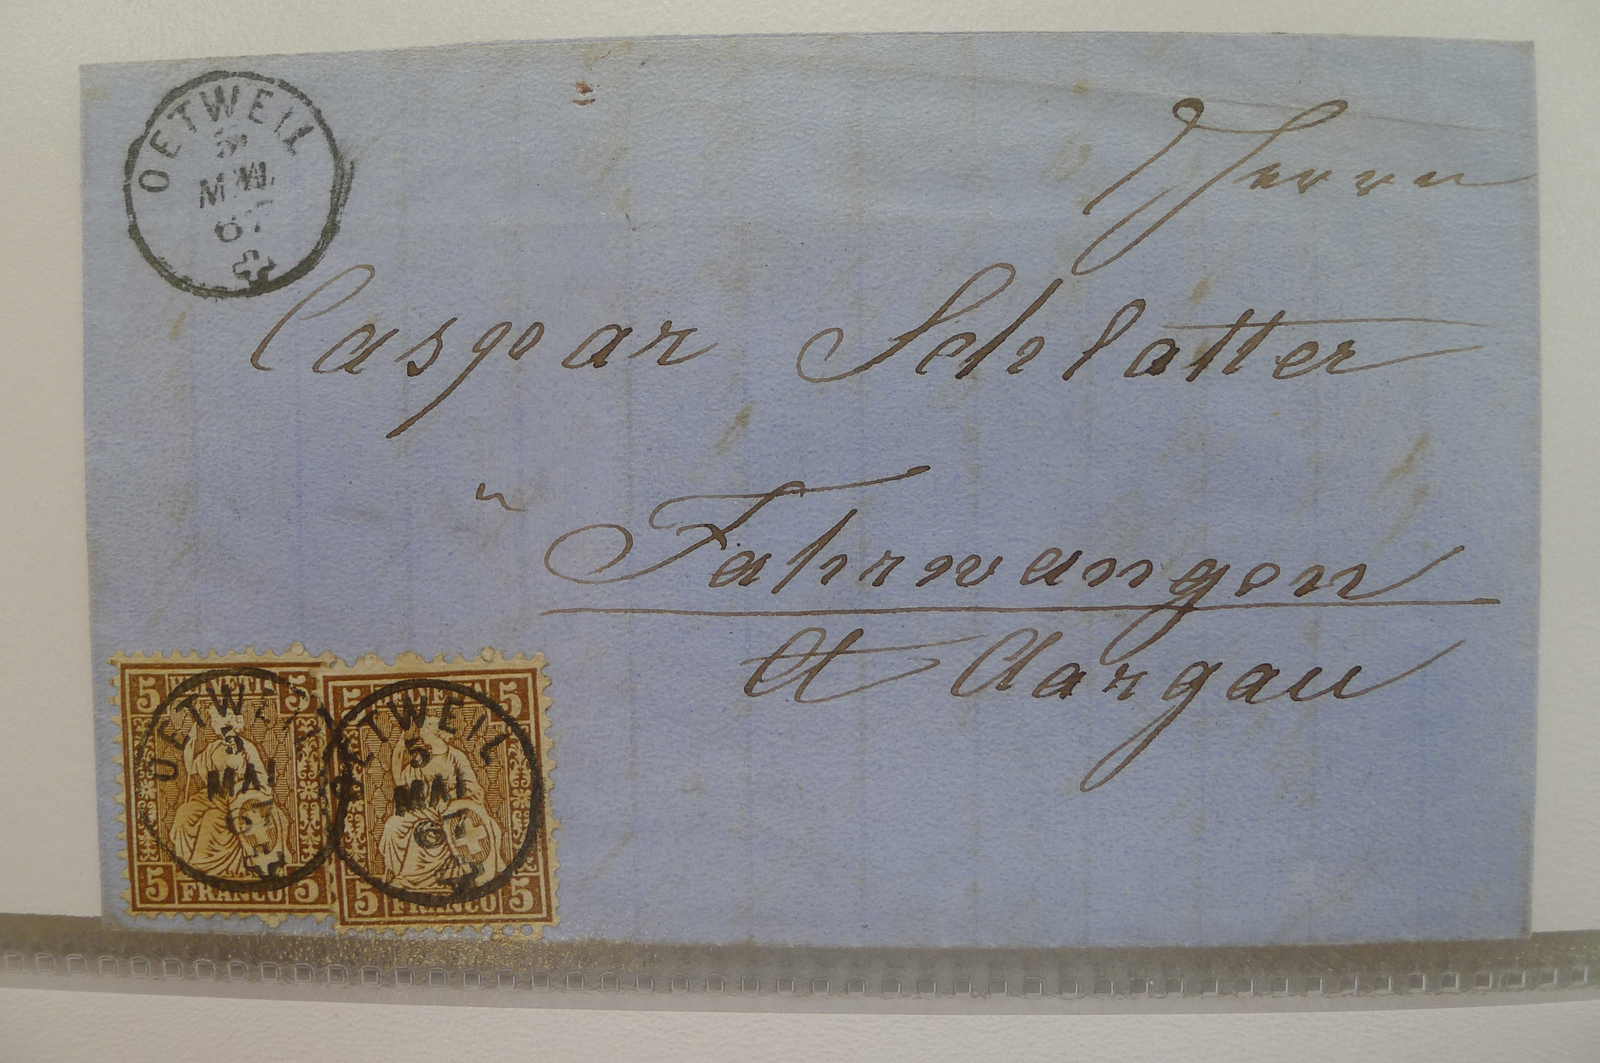 OETWEIL
5
MAI
67
Herrn
Caspar Schlatter
Fahrwangen
Ct Aargau
5 HELVETIA 5
OETWEIL
5
MAI
67
5 FRANCO 5
5 HELVETIA 5
OETWEIL
5
MAI
67
5 FRANCO 5